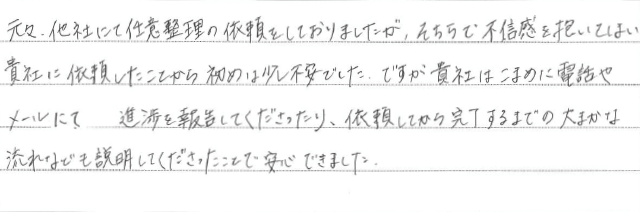 元々、他社にて任意整理の依頼をしておりましたが、そちらで不信感を抱いてしまい
貴社に依頼したことから初めは少し不安でした。ですが貴社はこまめに電話や
メールにて 進渉を報告してくださったり、依頼してから完了するまでの大まかな
流れなども説明してくださったことで安心できました。